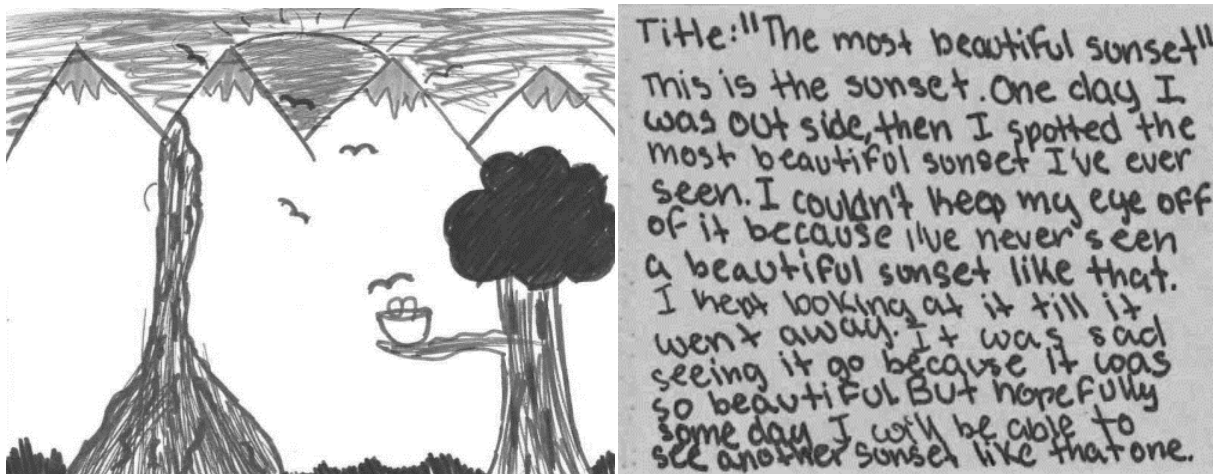 Title:"The most beautiful sunset"
This is the sunset. One day I
was out side, then I spotted the
most beautiful sunset I've ever
seen. I couldn't keep my eye off
of it because I've never seen
a beautiful sunset like that.
I kept looking at it till it
went away. It was sad
seeing it go because it was
so beautiful. But hopefully
some day I will be able to
see another sunset like that one.